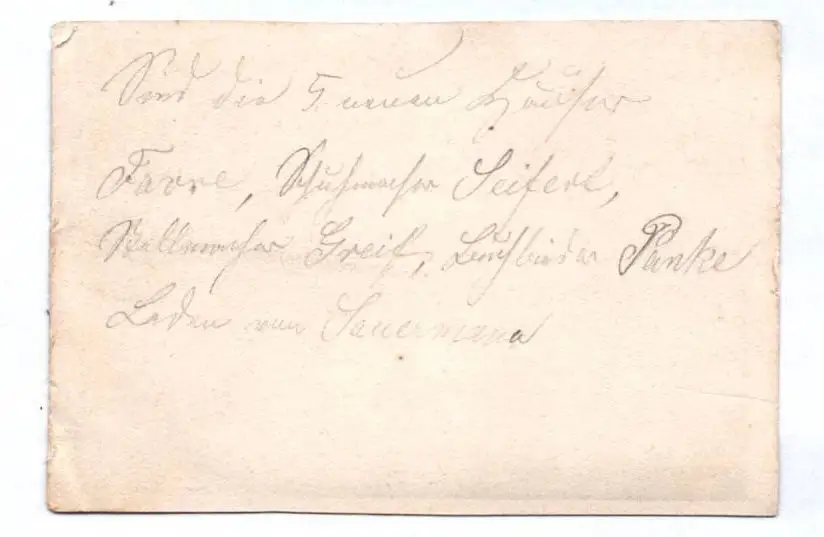 Sind die 5 neuen Häuser
Favre, Schuhmacher Seifert,
Stellmacher Greif, Buchbinder Panke
Laden von Sauermann